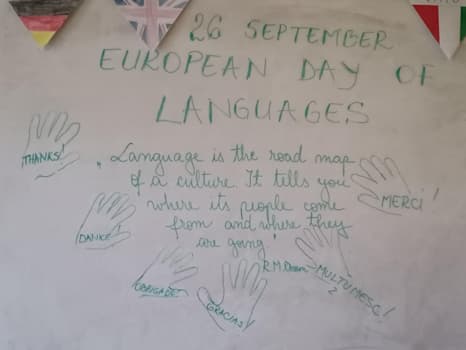 26 SEPTEMBER
EUROPEAN DAY OF
LANGUAGES
THANKS!
„Language is the road map
of a culture. It tells you
where its people come
from and where they
are going"
MERCI!
DANKE!
OBRIGADE!
GRACIAS!
MULTUMESC!